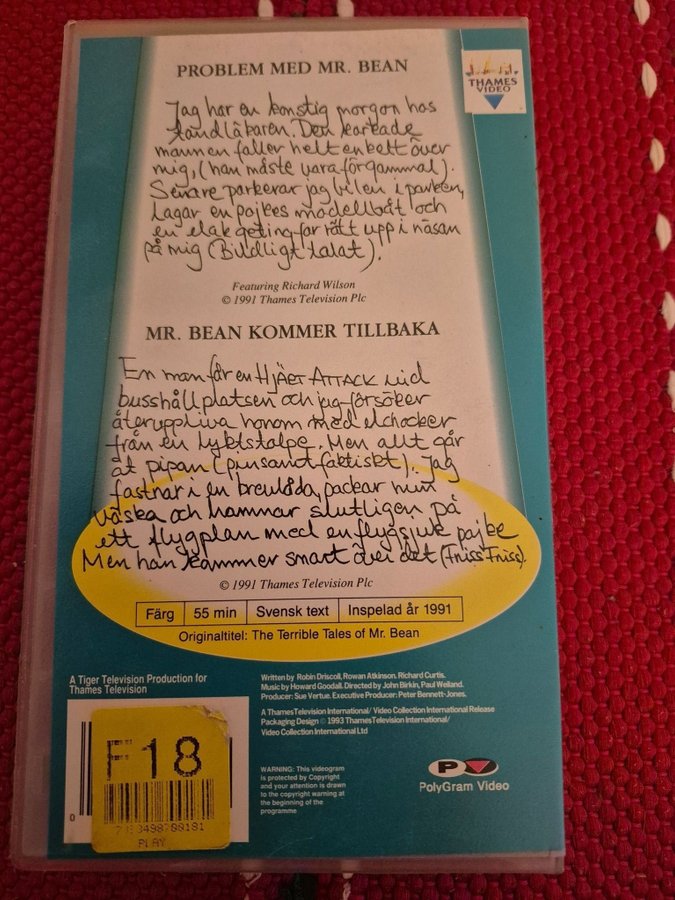 PROBLEM MED MR. BEAN
THAMES
VIDEO
Jag har en konstig morgon hos
tandläkaren. Den karkade
mannen faller helt enkelt över
mig, (han måste vara för gammal).
Senare parkerar jag bilen i parken,
lagar en pojkes modellbåt och
en elak geting far rätt upp i näsan
på mig (Bildligt talat).
Featuring Richard Wilson
© 1991 Thames Television Plc
MR. BEAN KOMMER TILLBAKA
En man får en HJÄRT ATTACK vid
busshållplatsen och jag försöker
återuppliva honom med elchocker
från en lyktstolpe. Men allt går
åt pipan (pinsamt faktiskt). Jag
fastnar i en brevlåda, packar min
väska och hamnar slutligen på
ett flygplan med en flygsjuk pojke
Men han kommer snart över det (Fniss Fniss).
© 1991 Thames Television Plc
Färg 55 min Svensk text Inspelad år 1991
Originaltitel: The Terrible Tales of Mr. Bean
A Tiger Television Production for
Thames Television
Written by Robin Driscoll, Rowan Atkinson. Richard Curtis.
Music by Howard Goodall. Directed by John Birkin, Paul Weiland.
Producer: Sue Vertue. Executive Producer: Peter Bennett-Jones.
A Thames Television International/ Video Collection International Release
Packaging Design © 1993 Thames Television International/
Video Collection International Ltd
WARNING: This videogram
is protected by Copyright
and your attention is drawn
to the copyright warning at
the beginning of the
programme
PolyGram Video
F18
0
PLAY